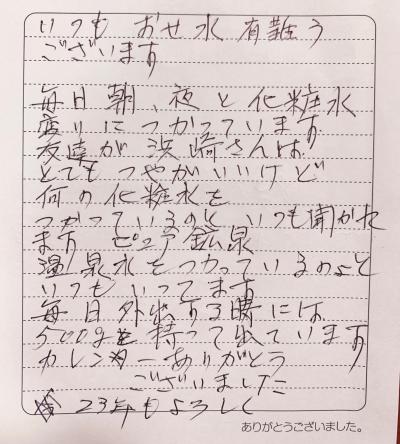 いつも おせ水 有難う
ございます
毎日 朝、夜と 化粧水
変りに つかっています
友達が 浜崎さんは
とても つやがいいけど
何の 化粧水を
つかっているのと いつも聞かれ
ます ピュア 鉱泉
温泉水をつかっているのよと
いつも いってます
毎日 外出する時には
500gを 持って出ています
カレンダーありがとう
ございました
23年もよろしく
ありがとうございました。